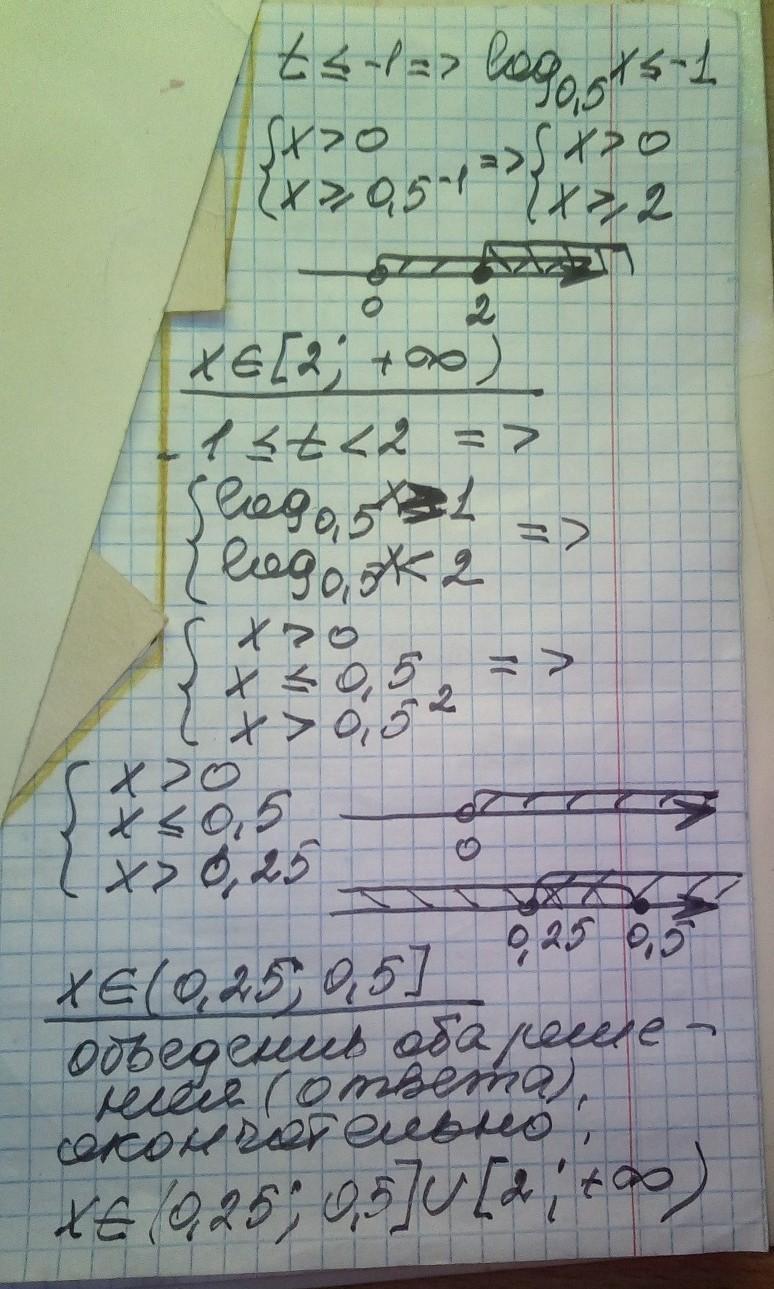 t ≤ -1 => log₀,₅ x ≤ -1
{ x > 0 => { x > 0
{ x ≥ 0,5⁻¹ { x ≥ 2
0 2
x ∈ [2; +∞)
1 ≤ t < 2 =>
{ log₀,₅ x ≥ 1 =>
{ log₀,₅ x < 2
{ x > 0
{ x ≤ 0,5 =>
{ x > 0,5²
{ x > 0
{ x ≤ 0,5
0
{ x > 0,25
0,25 0,5
x ∈ (0,25; 0,5]
объеденив оба реше-
ния (ответа),
окончательно:
x ∈ (0,25; 0,5] ∪ [2; +∞)